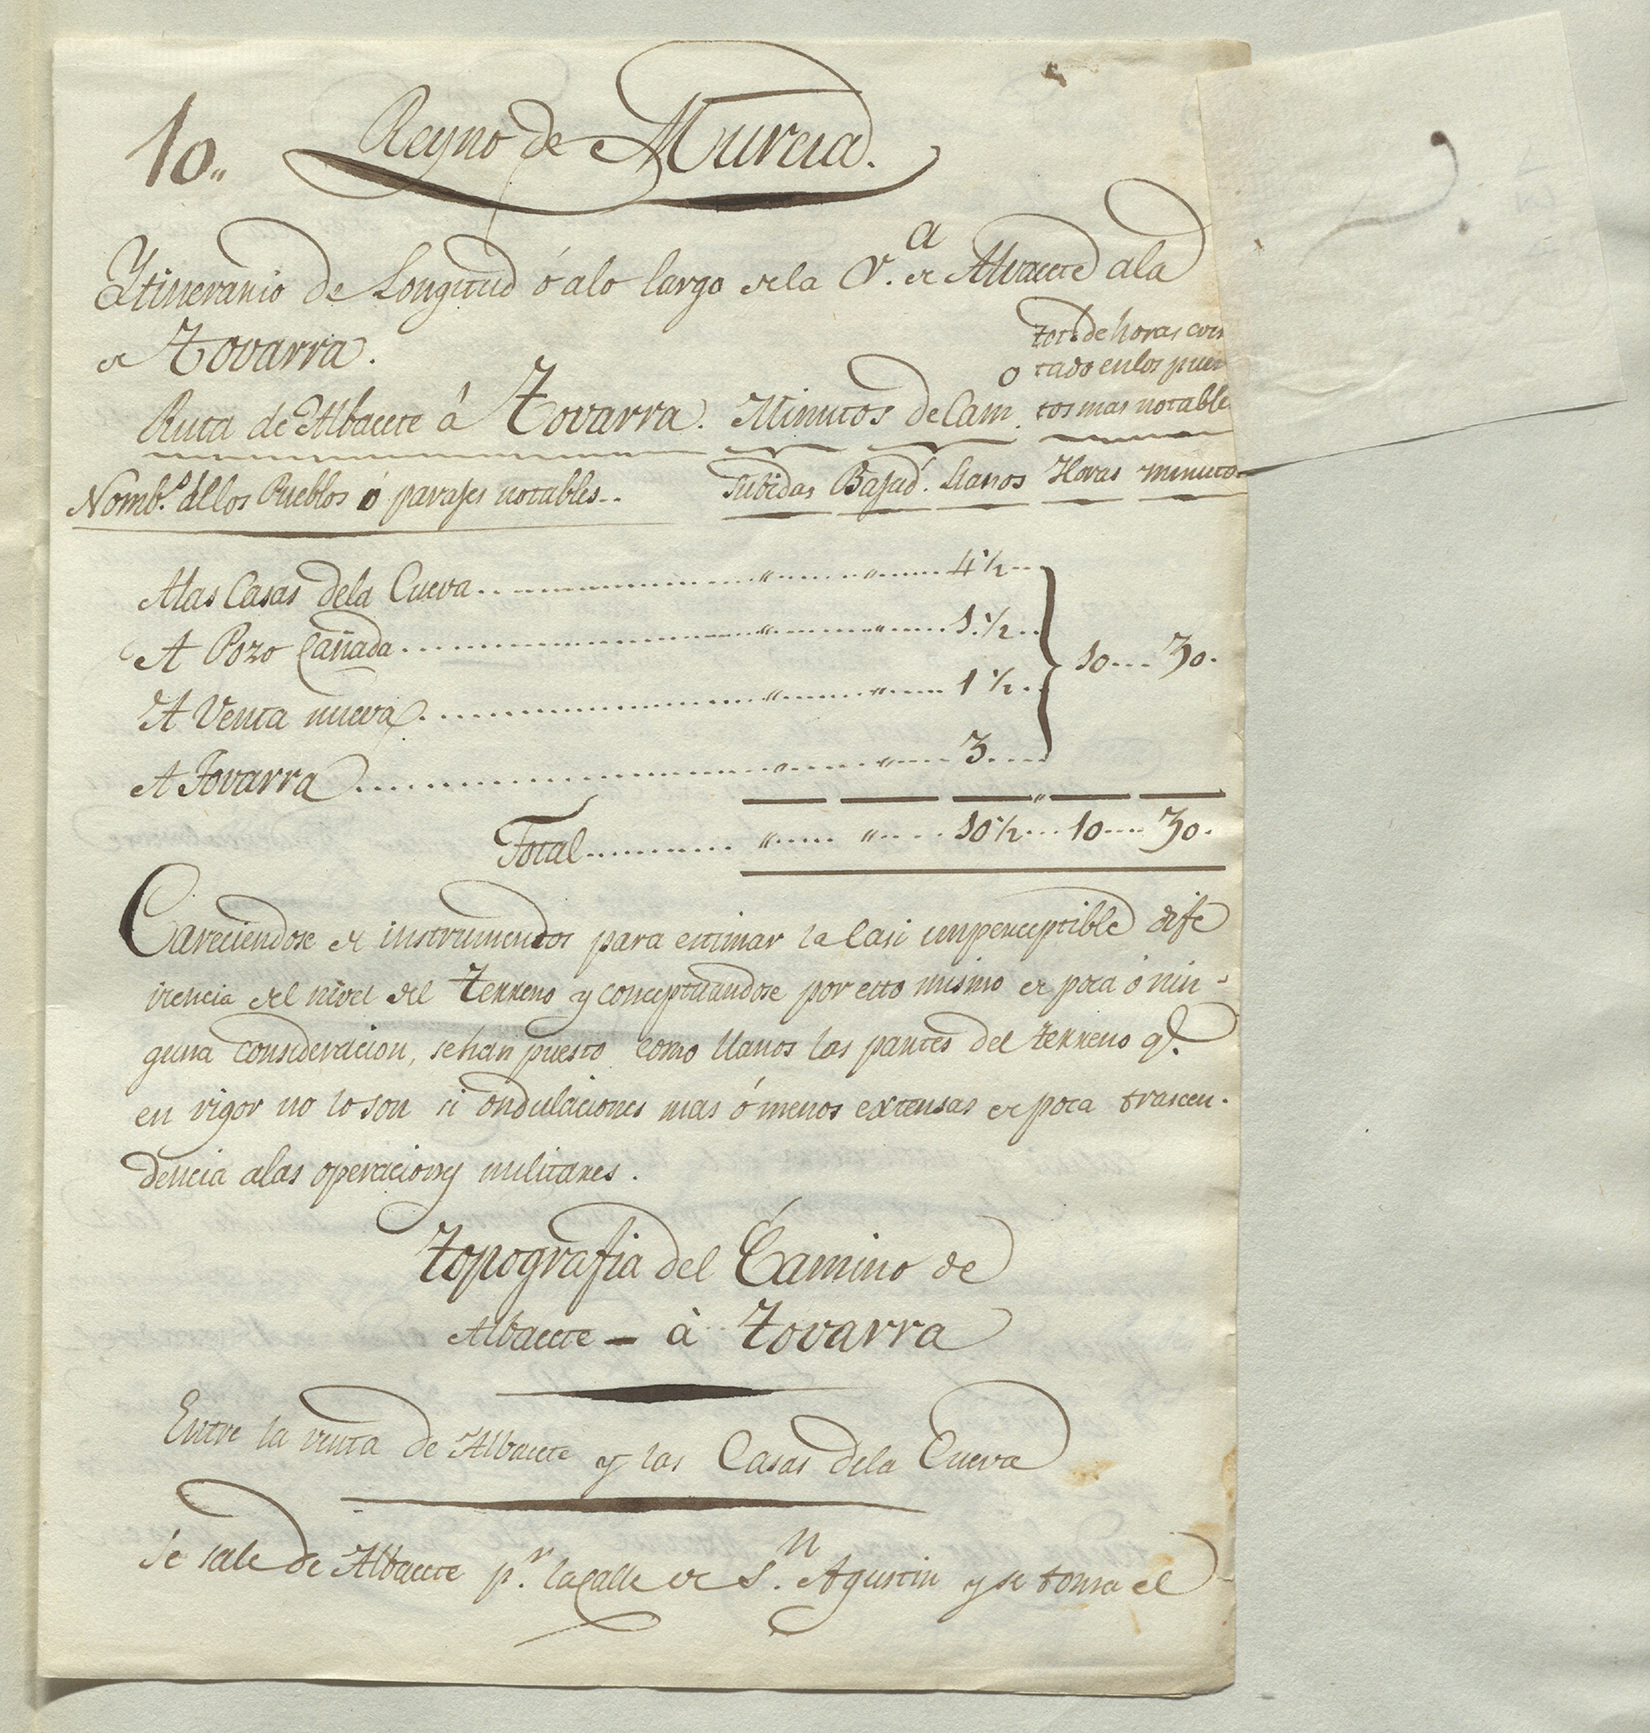 10.,
Reyno de Murcia.
Ytinerario de Longitud ó alo largo dela V.ª de Alvacete ala
de Tovarra.
tot.s de horas con
tado en los pun
Ruta de Albacete â Tovarra. Minutos de Cam.º tos mas notable
Nomb.s dllos Pueblos ó parajes notables.. Subidas Bajad.s Llanos Horas minuto
Alas Casas dela Cueva .. " .... " .... 4 ½ ..
A Pozo Cañada .... " .... " .... 1 ½ .. 10 .... 30.
A Venta nueva .... " .... " .... 1 ½ ..
A Tovarra .... " .... " .... 3 ....
Total .... " .... " .... 10 ½ ... 10 .... 30.
Careciendose de instrumentos para estimar la casi imperceptible dife
rencia del nivel del terreno y conceptuandose por esto mismo de poca ó nin-
guna consideracion, sehan puesto como llanos las partes del terreno q.e
en rigor no lo son si ondulaciones mas ó menos extensas de poca trascen.
dencia alas operaciones militares.
Topografia del Camino de
Albacete - à Tovarra
Entre la venta de Albacete y las Casas dela Cueva
Se sale de Albacete p.r la calle de S.n Agustin y se toma el